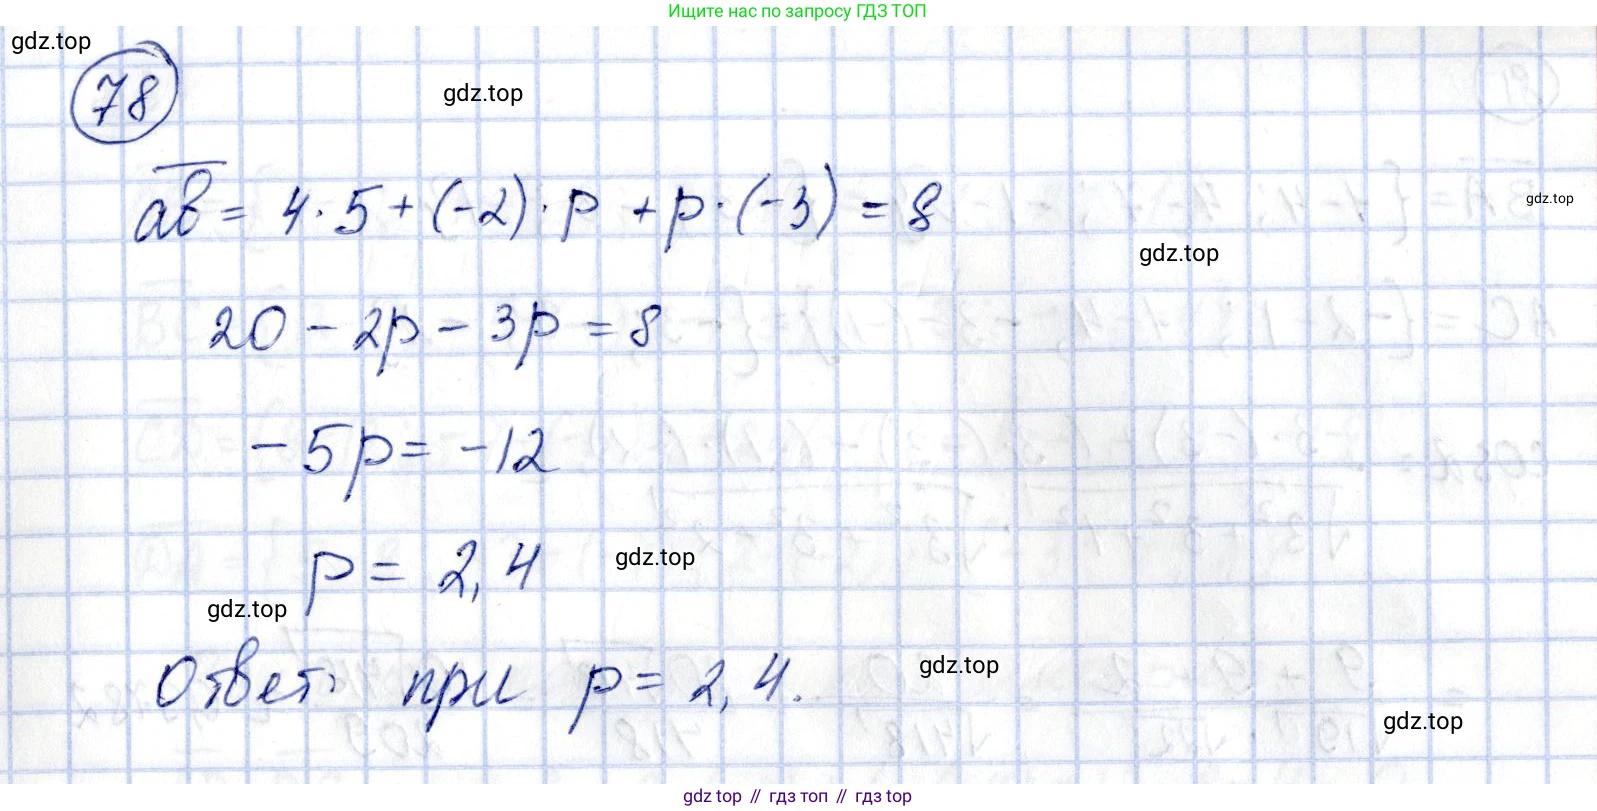 Ищите нас по запросу ГДЗ ТОП
gdz.top
78
gdz.top
ав = 4·5+(-2)·p +p·(-3) = 8
gdz.top
gdz.top
20 - 2p - 3p = 8
-5p = -12
p = 2,4
gdz.top
gdz.top
Ответ: при p = 2,4.
gdz.top
gdz.top
gdz.top // гдз топ // gdz.top